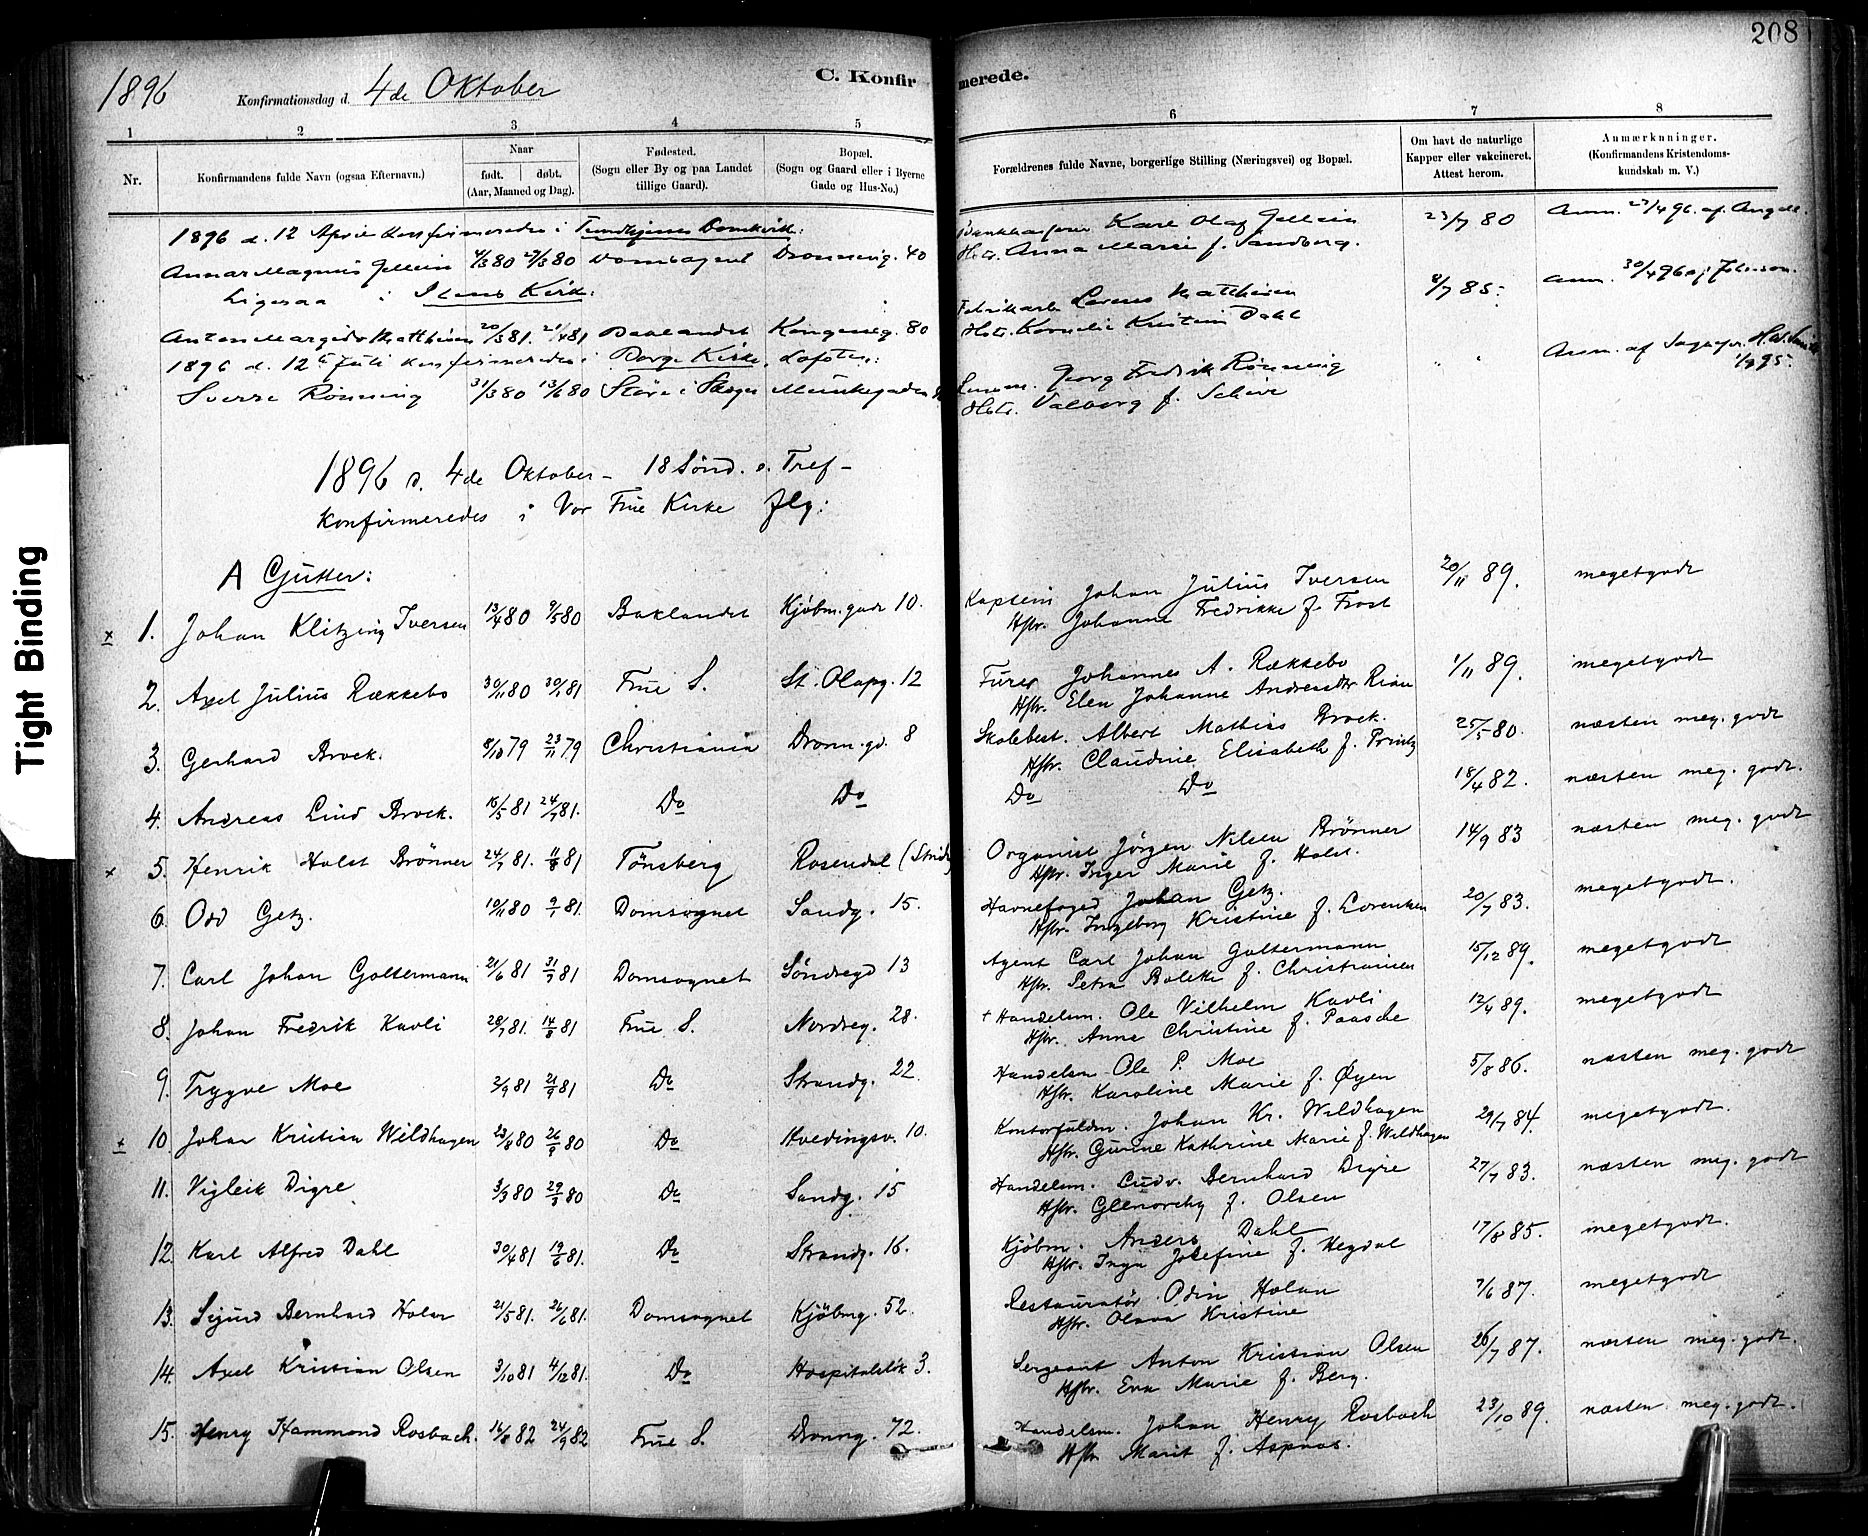 208
1896 Konfirmationsdag d. 4de Oktober
C. Konfirmerede.
1 2 3 4 5 6 7 8
Nr. Konfirmandens fulde Navn (ogsaa Efternavn.) Naar født. døbt. (Aar, Maaned og Dag). Fødested. (Sogn eller By og paa Landet tillige Gaard). Bopæl. (Sogn og Gaard eller i Byerne Gade og Hus-No.) Forældrenes fulde Navne, borgerlige Stilling (Næringsvei) og Bopæl. Om havt de naturlige Kapper eller vakcineret. Attest herom. Anmærkninger. (Konfirmandens Kristendoms-kundskab m. V.)
1896 d. 12 April konfirmeredes i Domkirk:
Annar Magnus 80 80 Domsognet Dronning. 40 Karl Olaf 23/7 80 Anm.
Hstr. Anna Marie f. Sandberg.
Ligesaa i Ilens Kirke:
Anton Margido Matthisen 20/3 81. 21/4 81 Baklandet Kongensg. 80 Lorens Matthisen 8/7 85 Anm. 30/4 96
Hstr. Kornelie Kristine Dahl
1896 d. 12te Juli konfirmeredes i Borge Kirke, Lofoten:
Sverre Rønning 31/3 80 13/6 80 Munkegaden Georg Fredrik Rønning " " Anm. af
Hstr. Valborg f. Schive
1896 d. 4de Oktober – 18 Sønd. e. Tref –
Konfirmeredes i Vor Frue Kirke flg:
A Gutter:
x 1. Johan Klitzing Iversen 13/4 80 9/5 80 Baklandet Kjøbm.gade 10. Kaptein Johan Julius Iversen 20/11 89. megetgodt
Hstr. Johanne Fredrikke f. Frost
2. Axel Julius Rækkebo 30/11 80 30/1 81 Frue S. St. Olafsg. 12 Furer Johannes A. Rækkebo 1/11 89. megetgodt
Hstr. Elen Johanne Andreasdtr Rian
3. Gerhard Brock. 8/10 79 23/11 79 Christiania Dronn.gd. 8 Skolebest. Albert Mathias Brock. 25/5 80. næsten meg. godt
Hstr. Claudine Elisabeth f. Printz
4. Andreas Lind Brock. 16/5 81 24/7 81. Do Do Do Do 18/4 82. næsten meg. godt.
x 5. Henrik Holst Brønner 24/7 81. 11/9 81 Tønsberg Rosendal Organist Jørgen Nilsen Brønner 14/9 83 næsten meg. godt
Hstr. Inger Marie f. Holst.
6. Odd Getz. 19/11 80 9/1 81. Domsognet Sandg. 15. Havnefoged Johan Getz. 20/7 83. megetgodt.
Hstr. Ingeborg Kristine f. Lorentzen
7. Carl Johan Goltermann 21/6 81 31/7 81 Domsognet Søndregd 13 Agent Carl Johan Goltermann 15/12 89. megetgodt
Hstr. Petra Bolette f. Christiansen
8. Johan Fredrik Kavli 28/7 81. 14/8 81 Frue S. Nordreg. 28. + Handelsm. Ole Vilhelm Kavli 12/4 89. megetgodt
Hstr. Anne Christine f. Paasche
9. Trygve Moe 2/9 81 21/9 81 Do Strandg. 22. Handelsm Ole P. Moe 5/8 86. næsten meg. godt
Hstr. Karoline Marie f. Øyen
x 10. Johan Kristian Wildhagen 23/8 80 26/9 80 Do Hvedingsv. 10. Kontorfuldm. Johan Kr. Wildhagen 29/7 84. megetgodt.
Hstr. Gurine Kathrine Marie f. Wildhagen
11. Vigleik Digre 3/3 80 29/3 80 Do Sandg. 15 Handelsm. Ludv. Bernhard Digre 27/7 83. næsten meg. godt
Hstr. Glenorchy f. Olsen
12. Karl Alfred Dahl 30/4 81 19/6 81. Do Strandg. 16. Kjøbm. Anders Dahl 17/8 85. megetgodt.
Hstr. Inga Josefine f. Hegdal
13. Sigurd Bernhard Holan 21/5 81. 26/6 81. Domsognet Kjøbmg. 52. Restauratør Odin Holan 7/6 87. megetgodt
Hstr. Olava Kristine
14. Axel Kristian Olsen 3/10 81 4/12 81. Do Hospitalsløk 3. Sergeant Anton Kristian Olsen 26/7 87. næsten meg. godt.
Hstr. Eva Marie f. Berg.
15. Henry Hammond Rosbach. 16/8 82 24/9 82 Frue S. Dronng. 72. Handelsm. Johan Henry Rosbach 23/10 89. næsten meg. godt.
Hstr Marit f. Aspaas.
Tight Binding